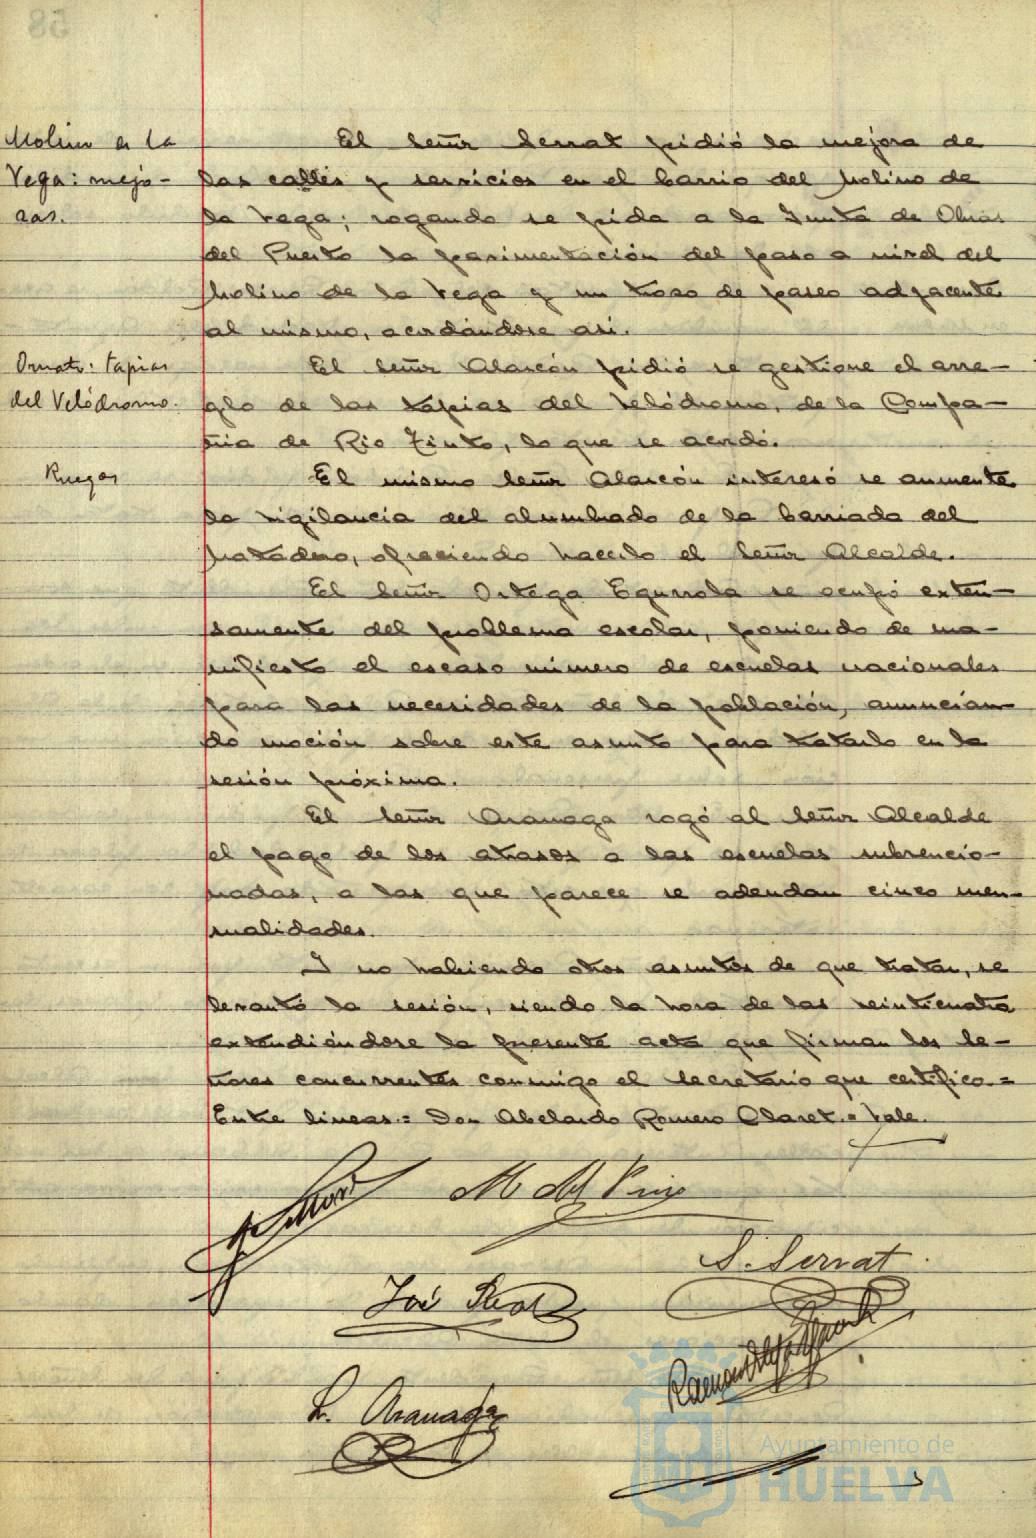 Molino de la
Vega: mejo-
ras.
El Señor Serrat pidió la mejora de
las calles y servicios en el barrio del Molino de
la Vega; rogando se pida a la Junta de Obras
del Puerto la pavimentación del paso a nivel del
Molino de la Vega y un trozo de paseo adyacente
al mismo, acordándose así.
Ornato: tapias
del Velódromo.
El Señor Alarcón pidió se gestione el arre-
glo de las tapias del Velódromo, de la Compa-
ñia de Rio Tinto, lo que se acordó.
Ruegos
El mismo Señor Alarcón interesó se aumente
la vigilancia del alumbrado de la barriada del
Matadero, ofreciendo hacerlo el Señor Alcalde.
El Señor Ortega Egurrola se ocupó exten-
samente del problema escolar, poniendo de ma-
nifiesto el escaso número de escuelas nacionales
para las necesidades de la población, anuncian-
do moción sobre este asunto para tratarlo en la
sesión próxima.
El Señor Aranaga rogó al Señor Alcalde
el pago de los atrasos a las escuelas subvencio-
nadas, a las que parece se adeudan cinco men-
sualidades.
Y no habiendo otros asuntos de que tratar, se
levantó la sesión, siendo la hora de las veinticuatro
extendiéndose la presente acta que firman los Se-
ñores concurrentes conmigo el Secretario que certifico.=
Entre lineas.= Don Abelardo Romero Claret.= Vale.
S. Serrat.
José
L. Aranaga
Ayuntamiento de
HUELVA
58